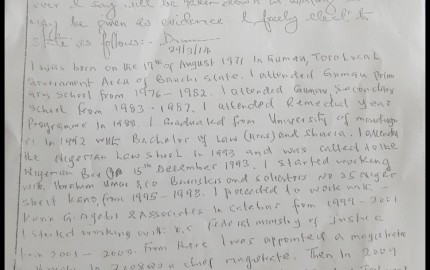 ever I say will be taken down in writing
may be given as evidence I freely elect to
state as follows:-
24/3/14
I was born on the 17th of August 1971 in Gumau, Toro Local
Government Area of Bauchi State. I attended Gumau Prim
ary School from 1976 - 1982. I attended Gumau Secondary
School from 1983 - 1987. I attended Remedial Year
Programme in 1988 I Graduated from University of Maidugu
ri in 1992 with Bachelor of Law (Hons) and Sharia. I attended
the Nigerian Law School in 1993 and was called to the
Nigerian Bar on 15th December 1993. I started working
with Ibrahim Umar & Co Barristers and solicitors No 25 Niger
Street Kano, from 1995 - 1998. I proceeded to work with
& Associates in Calabar from 1999 - 2001
I started working with Federal Ministry of Justice
from 2001 - 2002. from there I was appointed a magistrate
in 2008 as a chief magistrate. Then in 2009